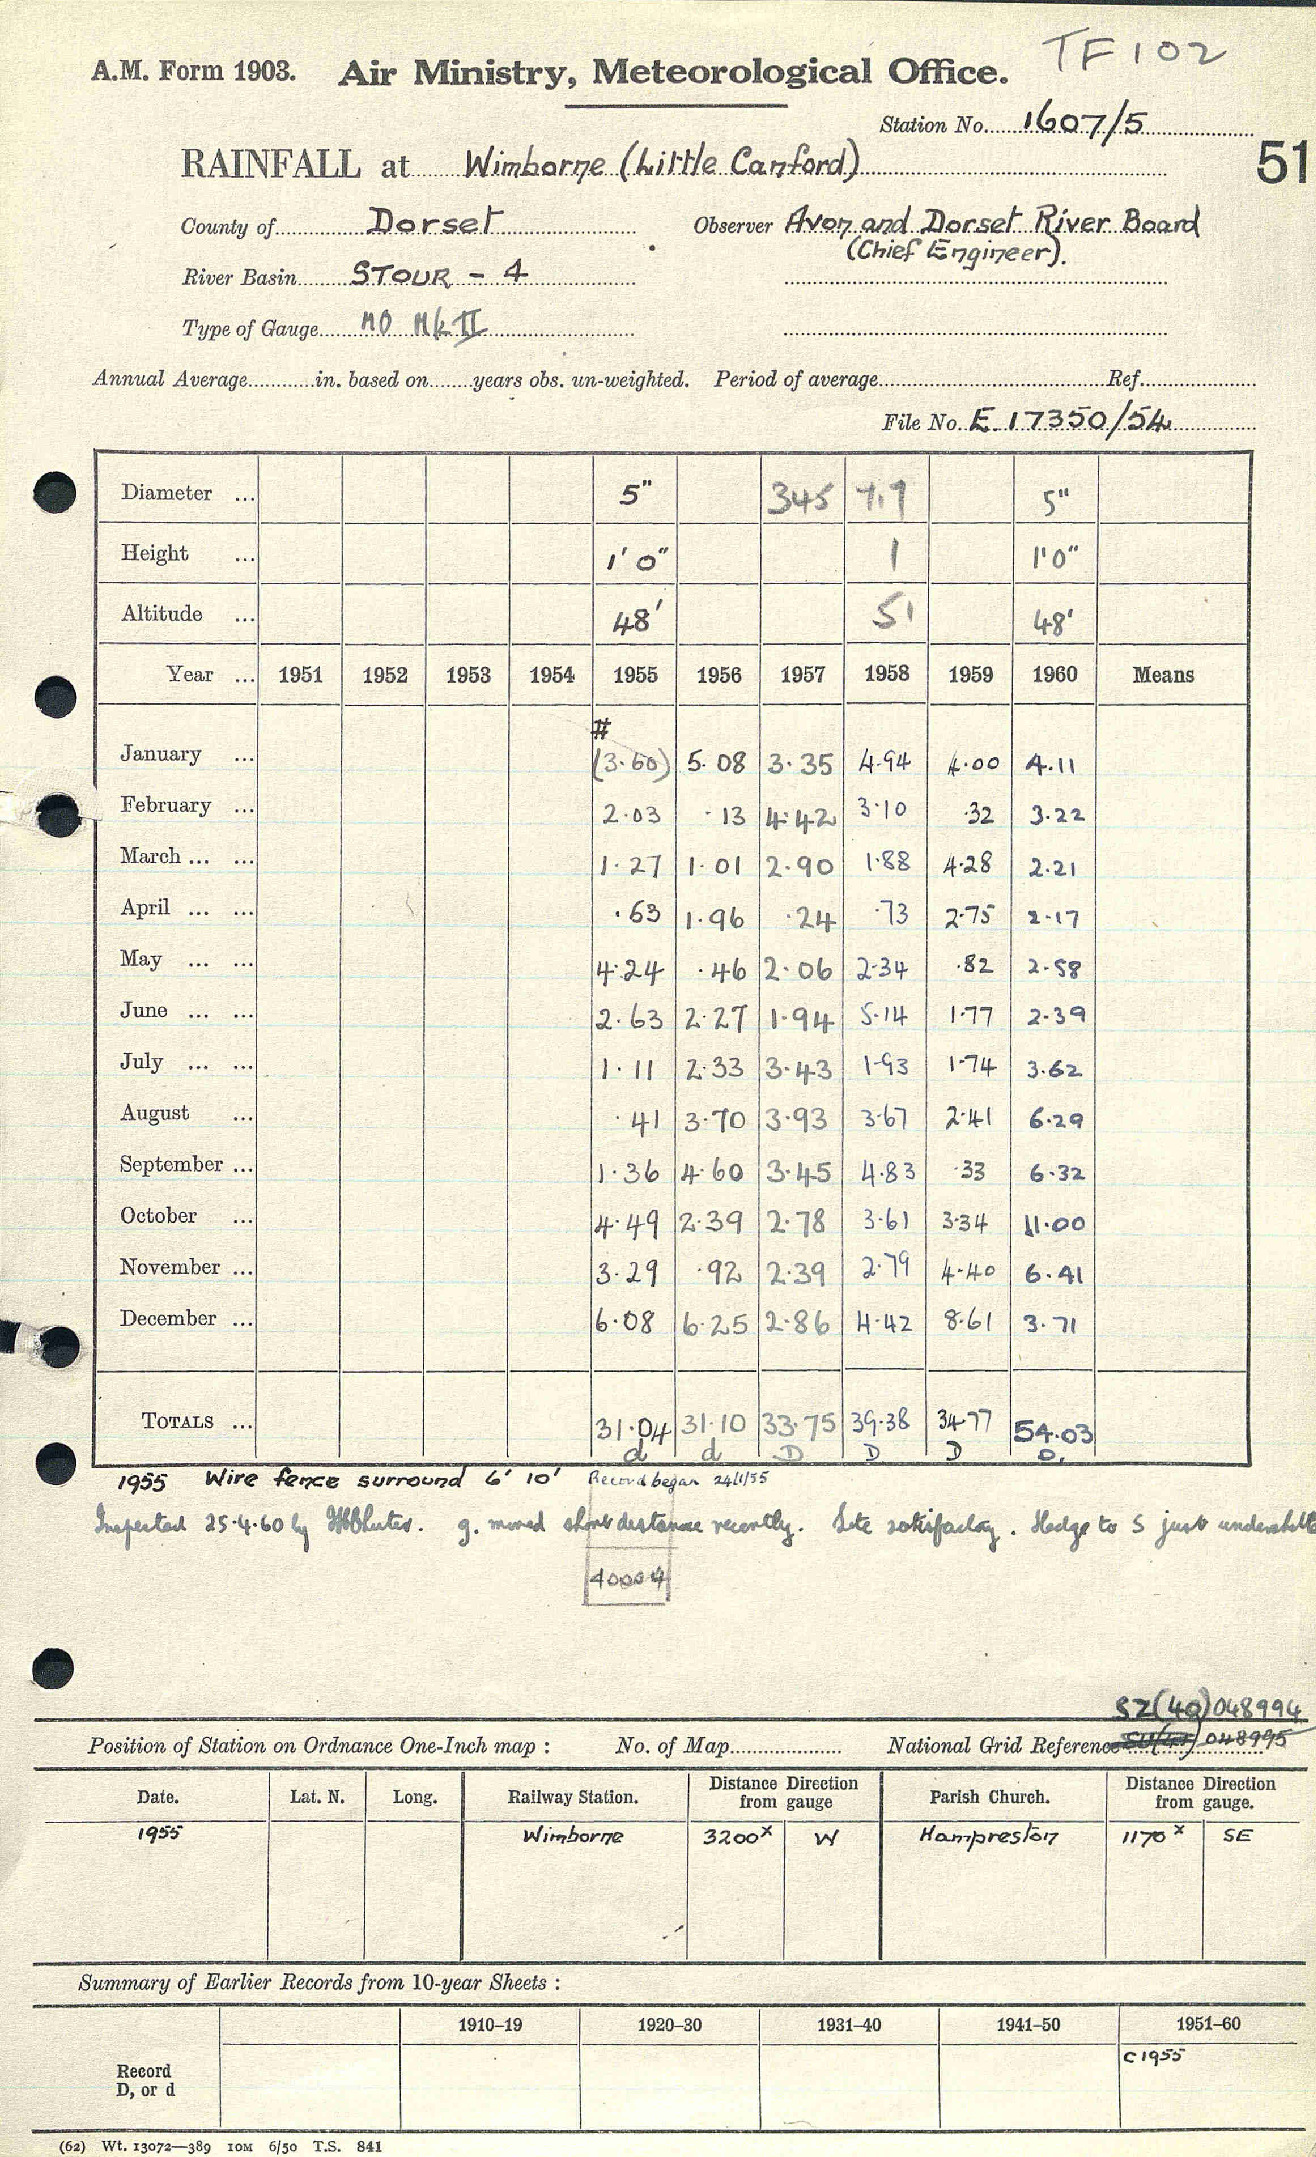 TF102
A.M. Form 1903. Air Ministry, Meteorological Office.
Station No. 1607/5
51
RAINFALL at Wimborne (Little Canford)
County of Dorset Observer Avon and Dorset River Board
(Chief Engineer).
River Basin STOUR - 4
Type of Gauge MO Mk II
Annual Average in. based on years obs. un-weighted. Period of average Ref.
File No. E 17350/54
Diameter ... 5" 345 7.9 5"
Height ... 1' 0" 1 1'0"
Altitude ... 48' 51 48'
Year ... 1951 1952 1953 1954 1955 1956 1957 1958 1959 1960 Means
#
January ... (3.60) 5.08 3.35 4.94 4.00 4.11
February ... 2.03 .13 4.42 3.10 .32 3.22
March ... ... 1.27 1.01 2.90 1.88 4.28 2.21
April ... ... .63 1.96 .24 .73 2.75 2.17
May ... ... 4.24 .46 2.06 2.34 .82 2.58
June ... ... 2.63 2.27 1.94 5.14 1.77 2.39
July ... ... 1.11 2.33 3.43 1.93 1.74 3.62
August ... .41 3.70 3.93 3.67 2.41 6.29
September ... 1.36 4.60 3.45 4.83 .33 6.32
October ... 4.49 2.39 2.78 3.61 3.34 11.00
November ... 3.29 .92 2.39 2.79 4.40 6.41
December ... 6.08 6.25 2.86 4.42 8.61 3.71
TOTALS ... 31.04 31.10 33.75 39.38 34.77 54.03
d d D D D D.
1955 Wire fence surround 6' 10' Record began 24/1/55
Inspected 25.4.60 by g. moved short distance recently. Site satisfactory. Hedge to S just
40009
SZ(40)048994
Position of Station on Ordnance One-Inch map : No. of Map National Grid Reference SU(41) 048995
Date. Lat. N. Long. Railway Station. Distance Direction from gauge Parish Church. Distance Direction from gauge.
1955 Wimborne 3200x W Hampreston 1170x SE
Summary of Earlier Records from 10-year Sheets :
1910–19 1920–30 1931–40 1941–50 1951–60
C1955
Record
D, or d
(62) Wt. 13072—389 10M 6/50 T.S. 841